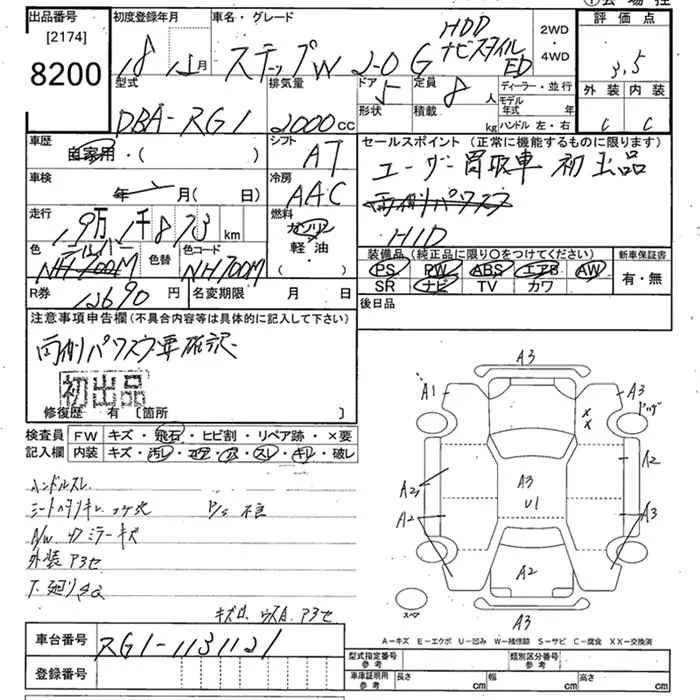 出品番号
[2174]
8200
初度登録年月
18 月
車名・グレード
ステップW 2-0 G HDD
ナビスタイル
ED
2WD
・
4WD
評価点
3.5
外装 内装
C C
型式
DBA-RG1
排気量
2000 CC
ドア 5
形状
定員 8 人
積載 kg
ディーラー・並行
モデル
年式 年
ハンドル 左・右
車歴
自家用・( )
シフト
AT
セールスポイント (正常に機能するものに限ります)
ユーザー買取車 初出品
両側パワスラ
HID
車検
年 月( 日)
冷房
AAC
走行
km
燃料
ガソリン
軽・油
・( )
色
NH700M
色替
色コード
NH700M
装備品 (純正品に限り○をつけてください)
PS PW ABS エアB AW
SR ナビ TV カワ
新車保証書
有・無
R券 12690 円
名変期限 月 日
後日品
注意事項申告欄(不具合内容等は具体的に記入して下さい)
両側パワスラ要確認
初出品
修復歴 有 〔箇所 〕
検査員
記入欄
FW キズ・飛石・ヒビ割・リペア跡・×要
内装 キズ・汚レ・コゲ・穴・スレ・キレ・破レ
ハンドルスレ
P/S 不良
A/W 4 ミラーキズ
外装 A3セ
A3
A1
A3
A2
A2
A2
A3
U1
A3
A2
スペア
A3
A-キズ E-エクボ U-凹み W-補修跡 S-サビ C-腐食 XX-交換済
車台番号
RG1-1131121
登録番号
型式指定番号
参考
類別区分番号
参考
車庫証明用
参考
長さ cm
幅 cm
高さ cm